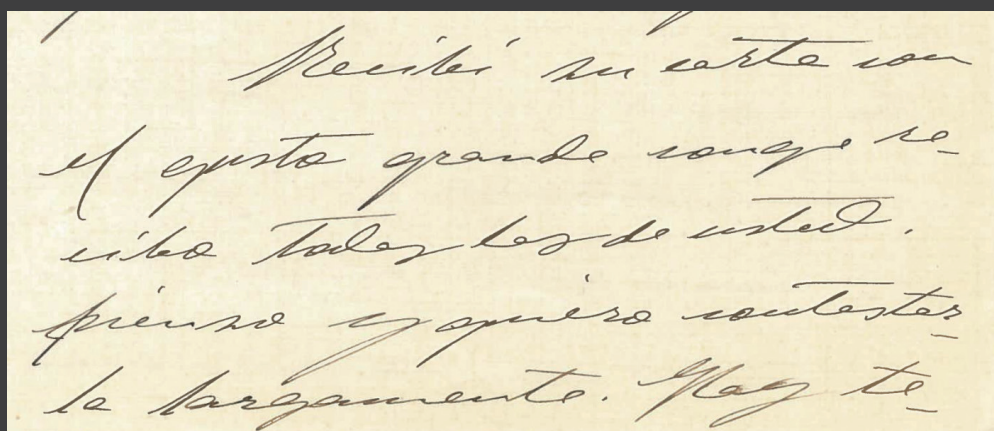 Recibí su carta con
el gusto grande conque re-
cibo todas las de usted.
pienso y quiero contestar-
la largamente. Hay te-